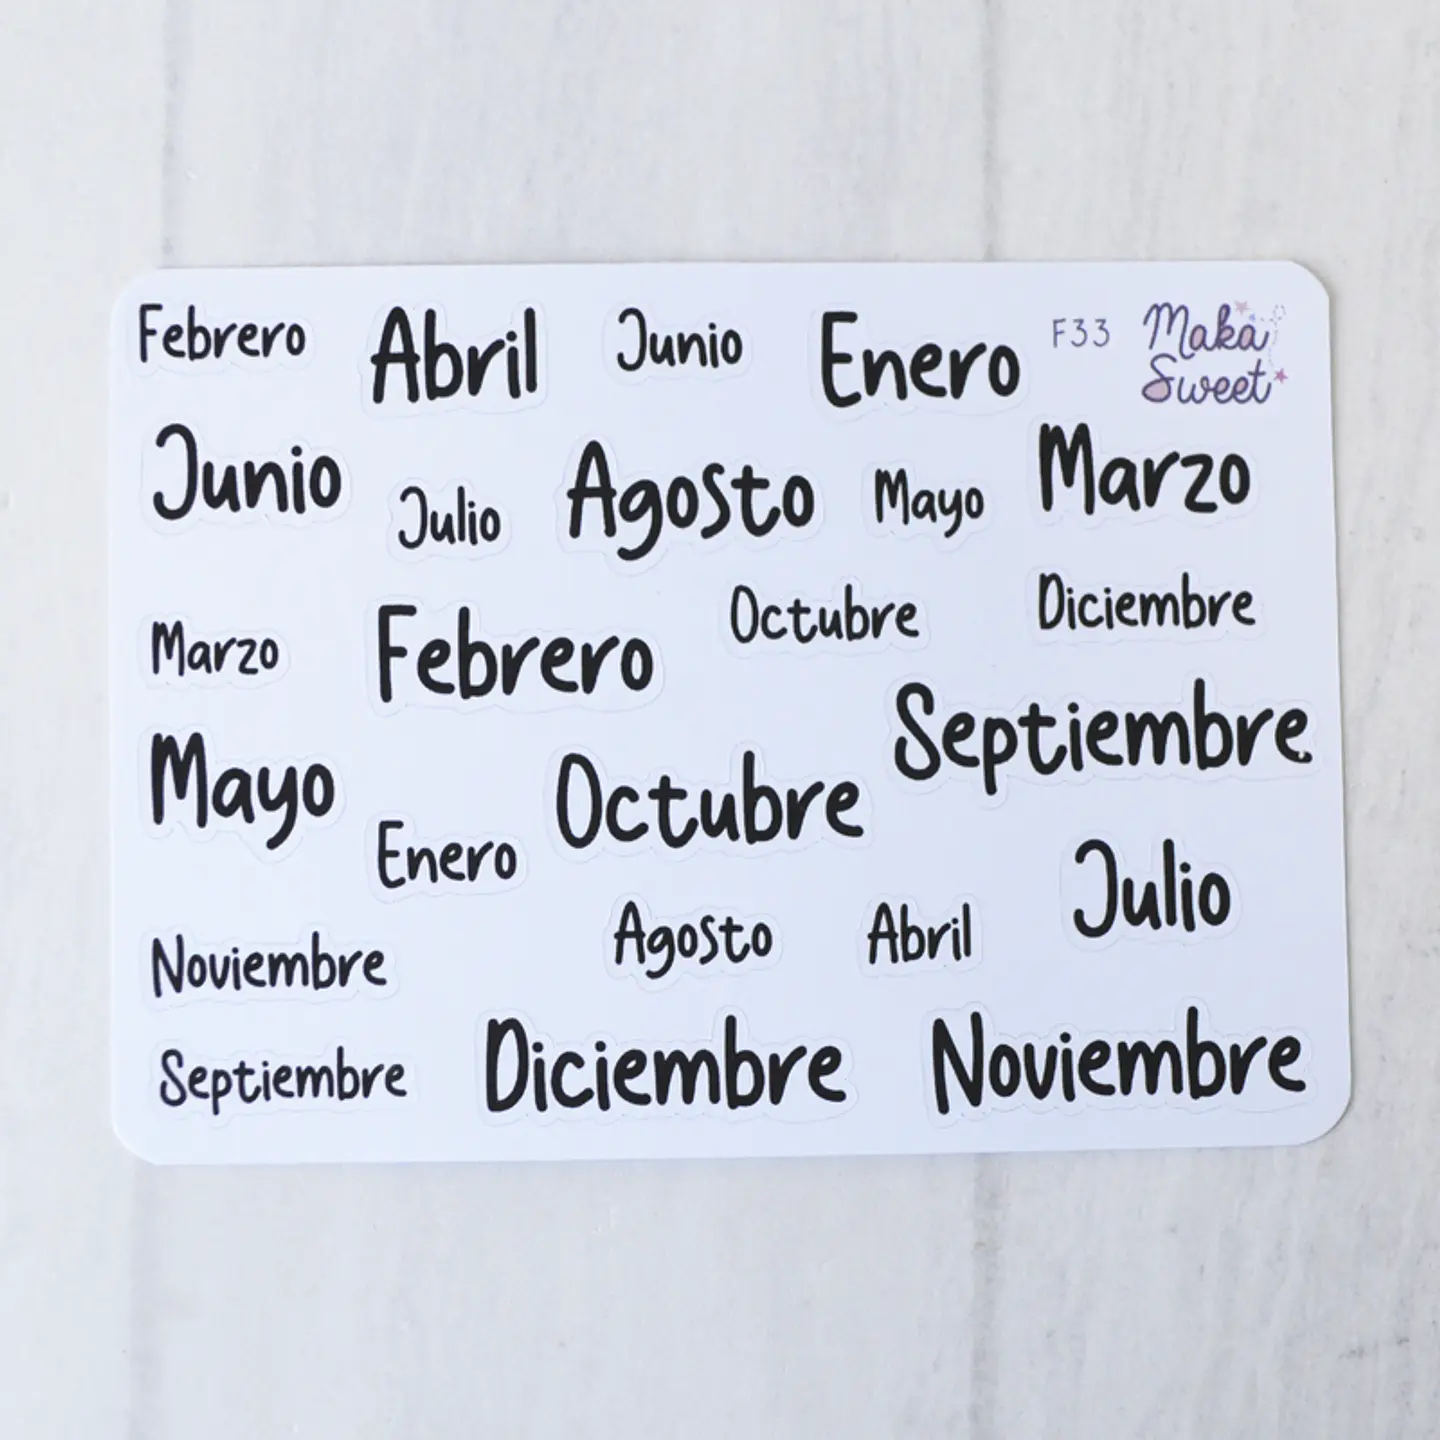 Febrero Abril Junio Enero F33 Maka Sweet
Junio Julio Agosto Mayo Marzo
Marzo Febrero Octubre Diciembre
Mayo Enero Octubre Septiembre
Noviembre Agosto Abril Julio
Septiembre Diciembre Noviembre